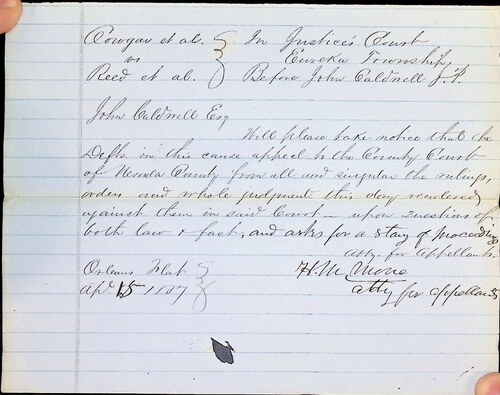 Cowgar et als. } In Justice's Court
vs } Eureka Township,
Reed et al. } Before John Caldwell J.P.
John Caldwell Esq
Will please take notice that the
Defts. in this cause appeal to the County Court
of Nevada County from all and singular the rulings,
orders and whole judgment this day rendered
against them in said Court — upon questions of
both law & fact, and asks for a stay of proceedings
Atty. for Appellants.
Orleans Flat } H. M. Moore
Apl. 15 1857 } atty for appellants